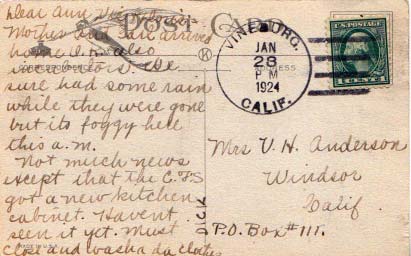 Dear Ann
Post Card
Mother and Earl arrived
home O.K. also
We
sure had some rain
while they were gone
but its foggy here
this a.m.
Not much news
except that the C.P.S
got a new kitchen
cabinet. Havent
seen it yet. Must
close and wash da clothes
DICK
VINEBURG.
JAN
28
P M
1924
CALIF.
U.S. POSTAGE
Mrs V. H. Anderson
Windsor
Calif
P.O. Box #111.
MADE IN U.S.A.